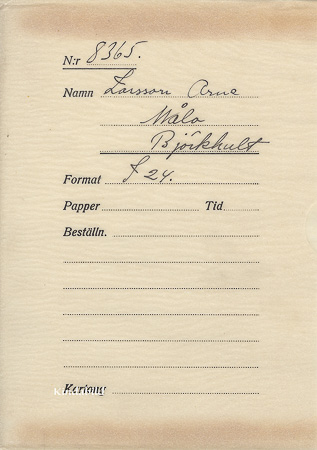 N:r 8365.
Namn Larsson Arne
Måla
Björkhult
Format f 24.
Papper Tid
Beställn.
Kartong